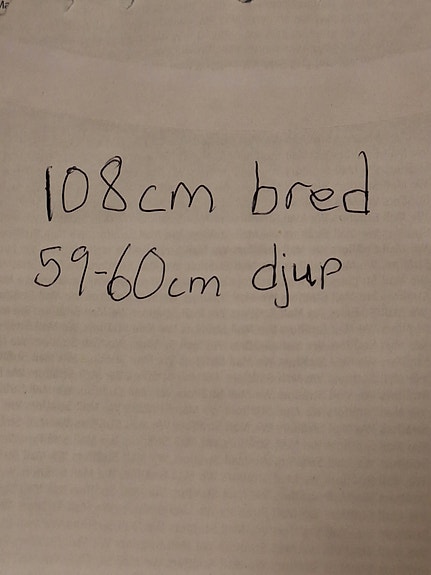 108cm bred
59-60cm djup